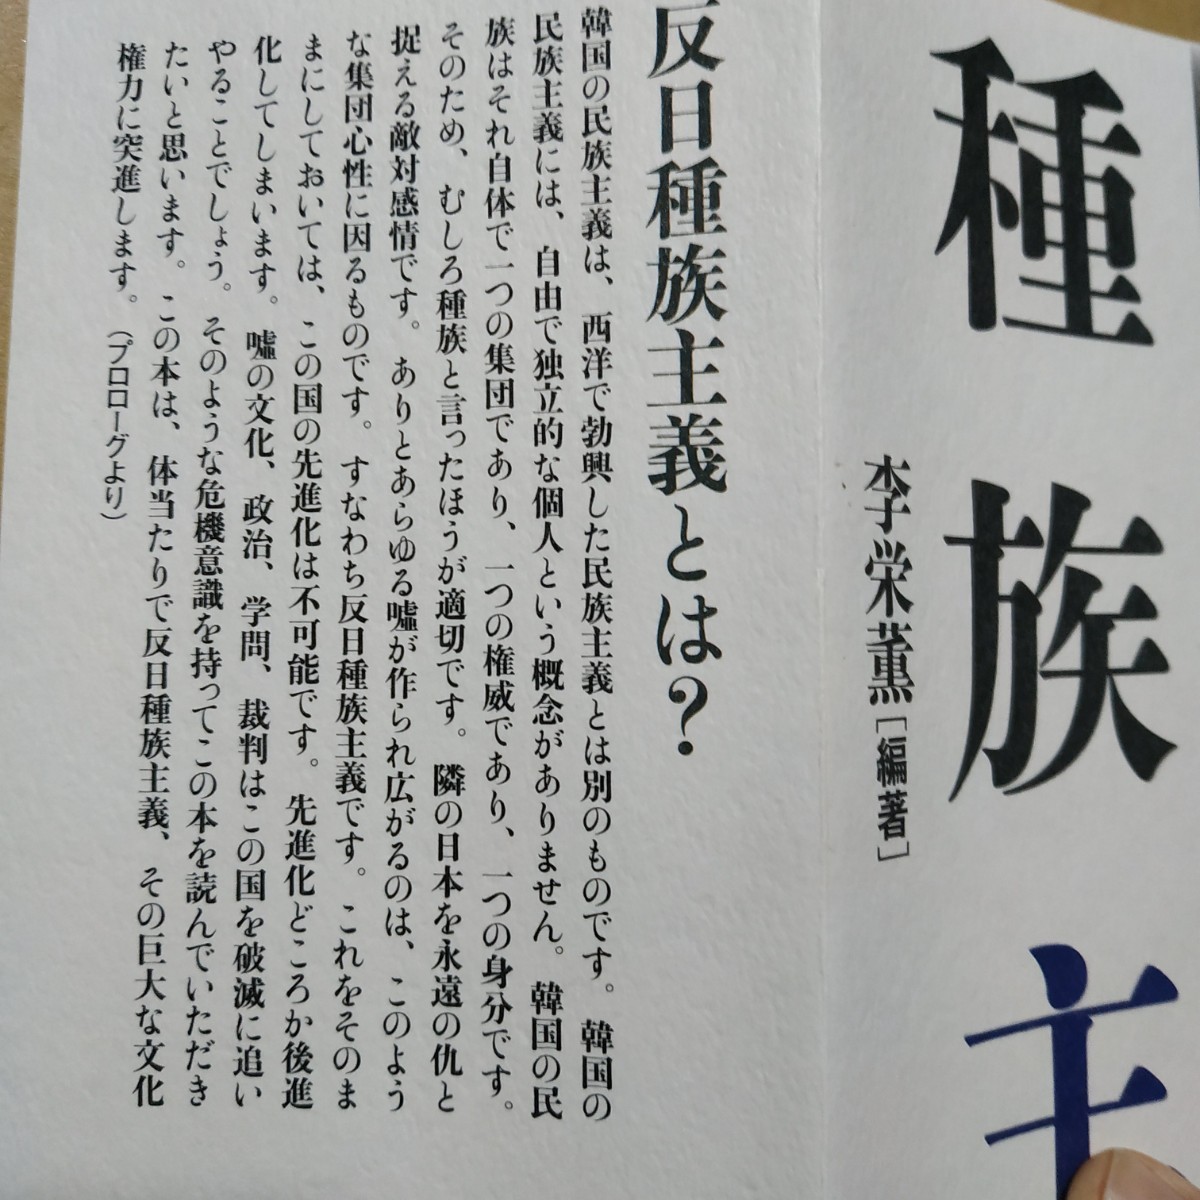 種族主
李栄薫［編著］
反日種族主義とは？
韓国の民族主義は、西洋で勃興した民族主義とは別のものです。韓国の
民族主義には、自由で独立的な個人という概念がありません。韓国の民
族はそれ自体で一つの集団であり、一つの権威であり、一つの身分です。
そのため、むしろ種族と言ったほうが適切です。隣の日本を永遠の仇と
捉える敵対感情です。ありとあらゆる嘘が作られ広がるのは、このよう
な集団心性に因るものです。すなわち反日種族主義です。これをそのま
まにしておいては、この国の先進化は不可能です。先進化どころか後進
化してしまいます。嘘の文化、政治、学問、裁判はこの国を破滅に追い
やることでしょう。そのような危機意識を持ってこの本を読んでいただき
たいと思います。この本は、体当たりで反日種族主義、その巨大な文化
権力に突進します。（プロローグより）